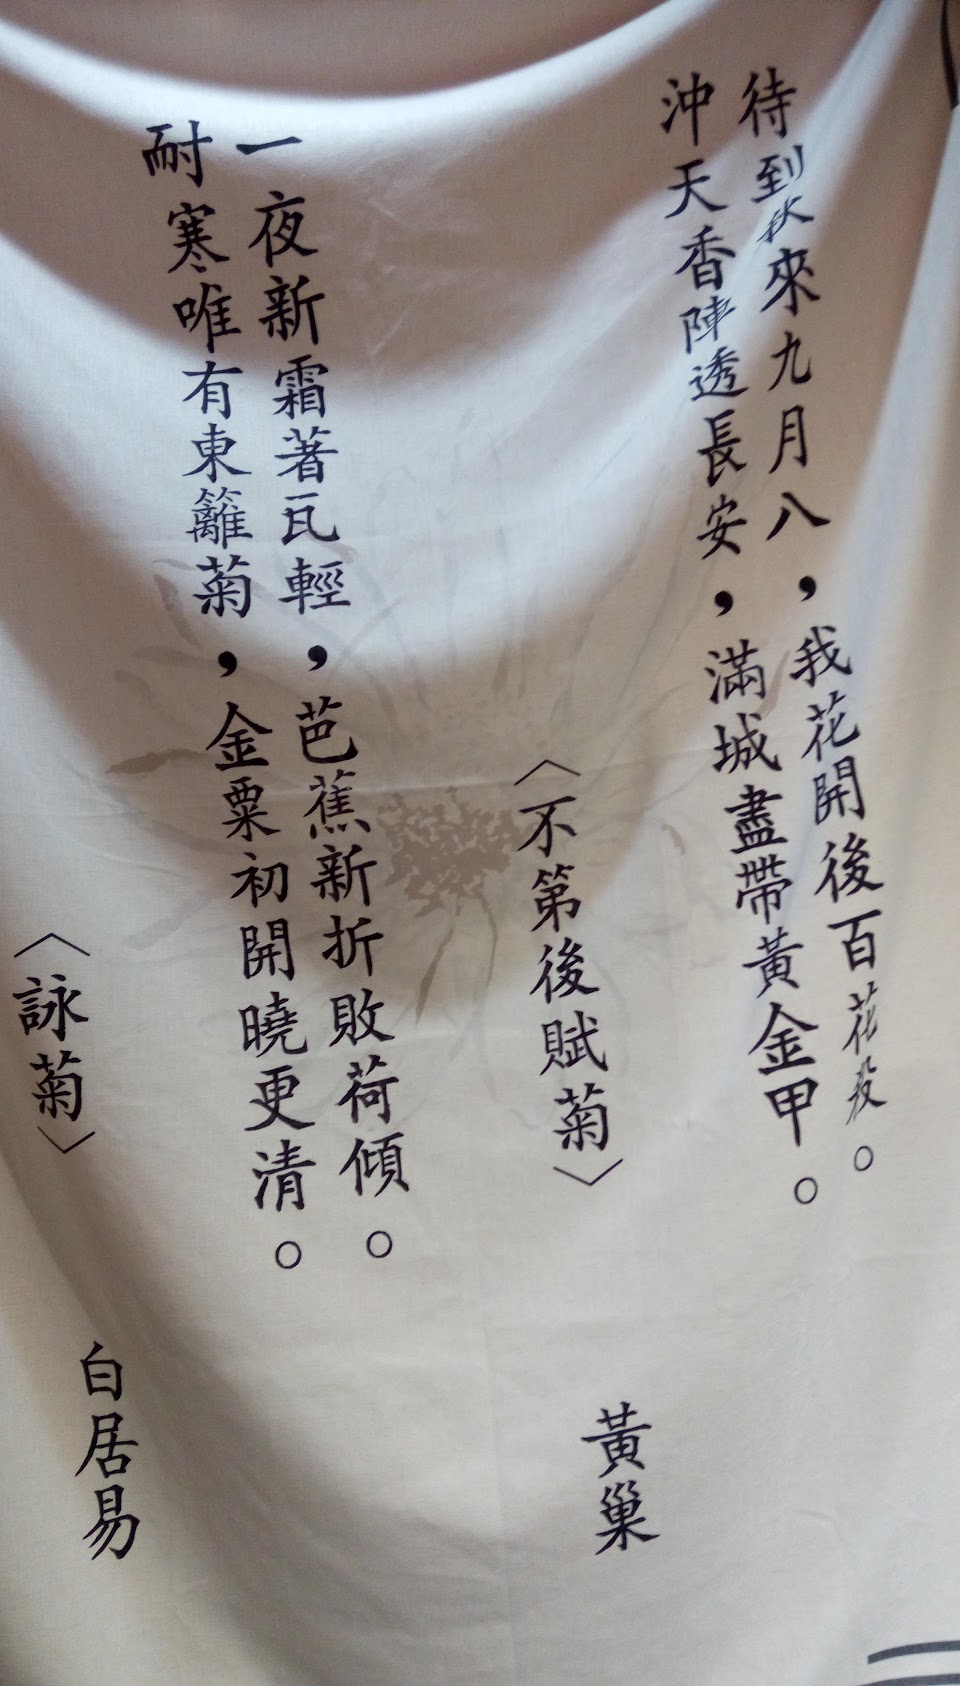 待到秋來九月八，我花開後百花殺。
沖天香陣透長安，滿城盡帶黃金甲。
〈不第後賦菊〉
黃巢
一夜新霜著瓦輕，芭蕉新折敗荷傾。
耐寒唯有東籬菊，金粟初開曉更清。
〈詠菊〉
白居易